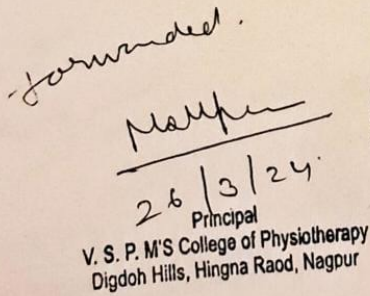 forwarded.
26/3/24.
Principal
V. S. P. M'S College of Physiotherapy
Digdoh Hills, Hingna Raod, Nagpur